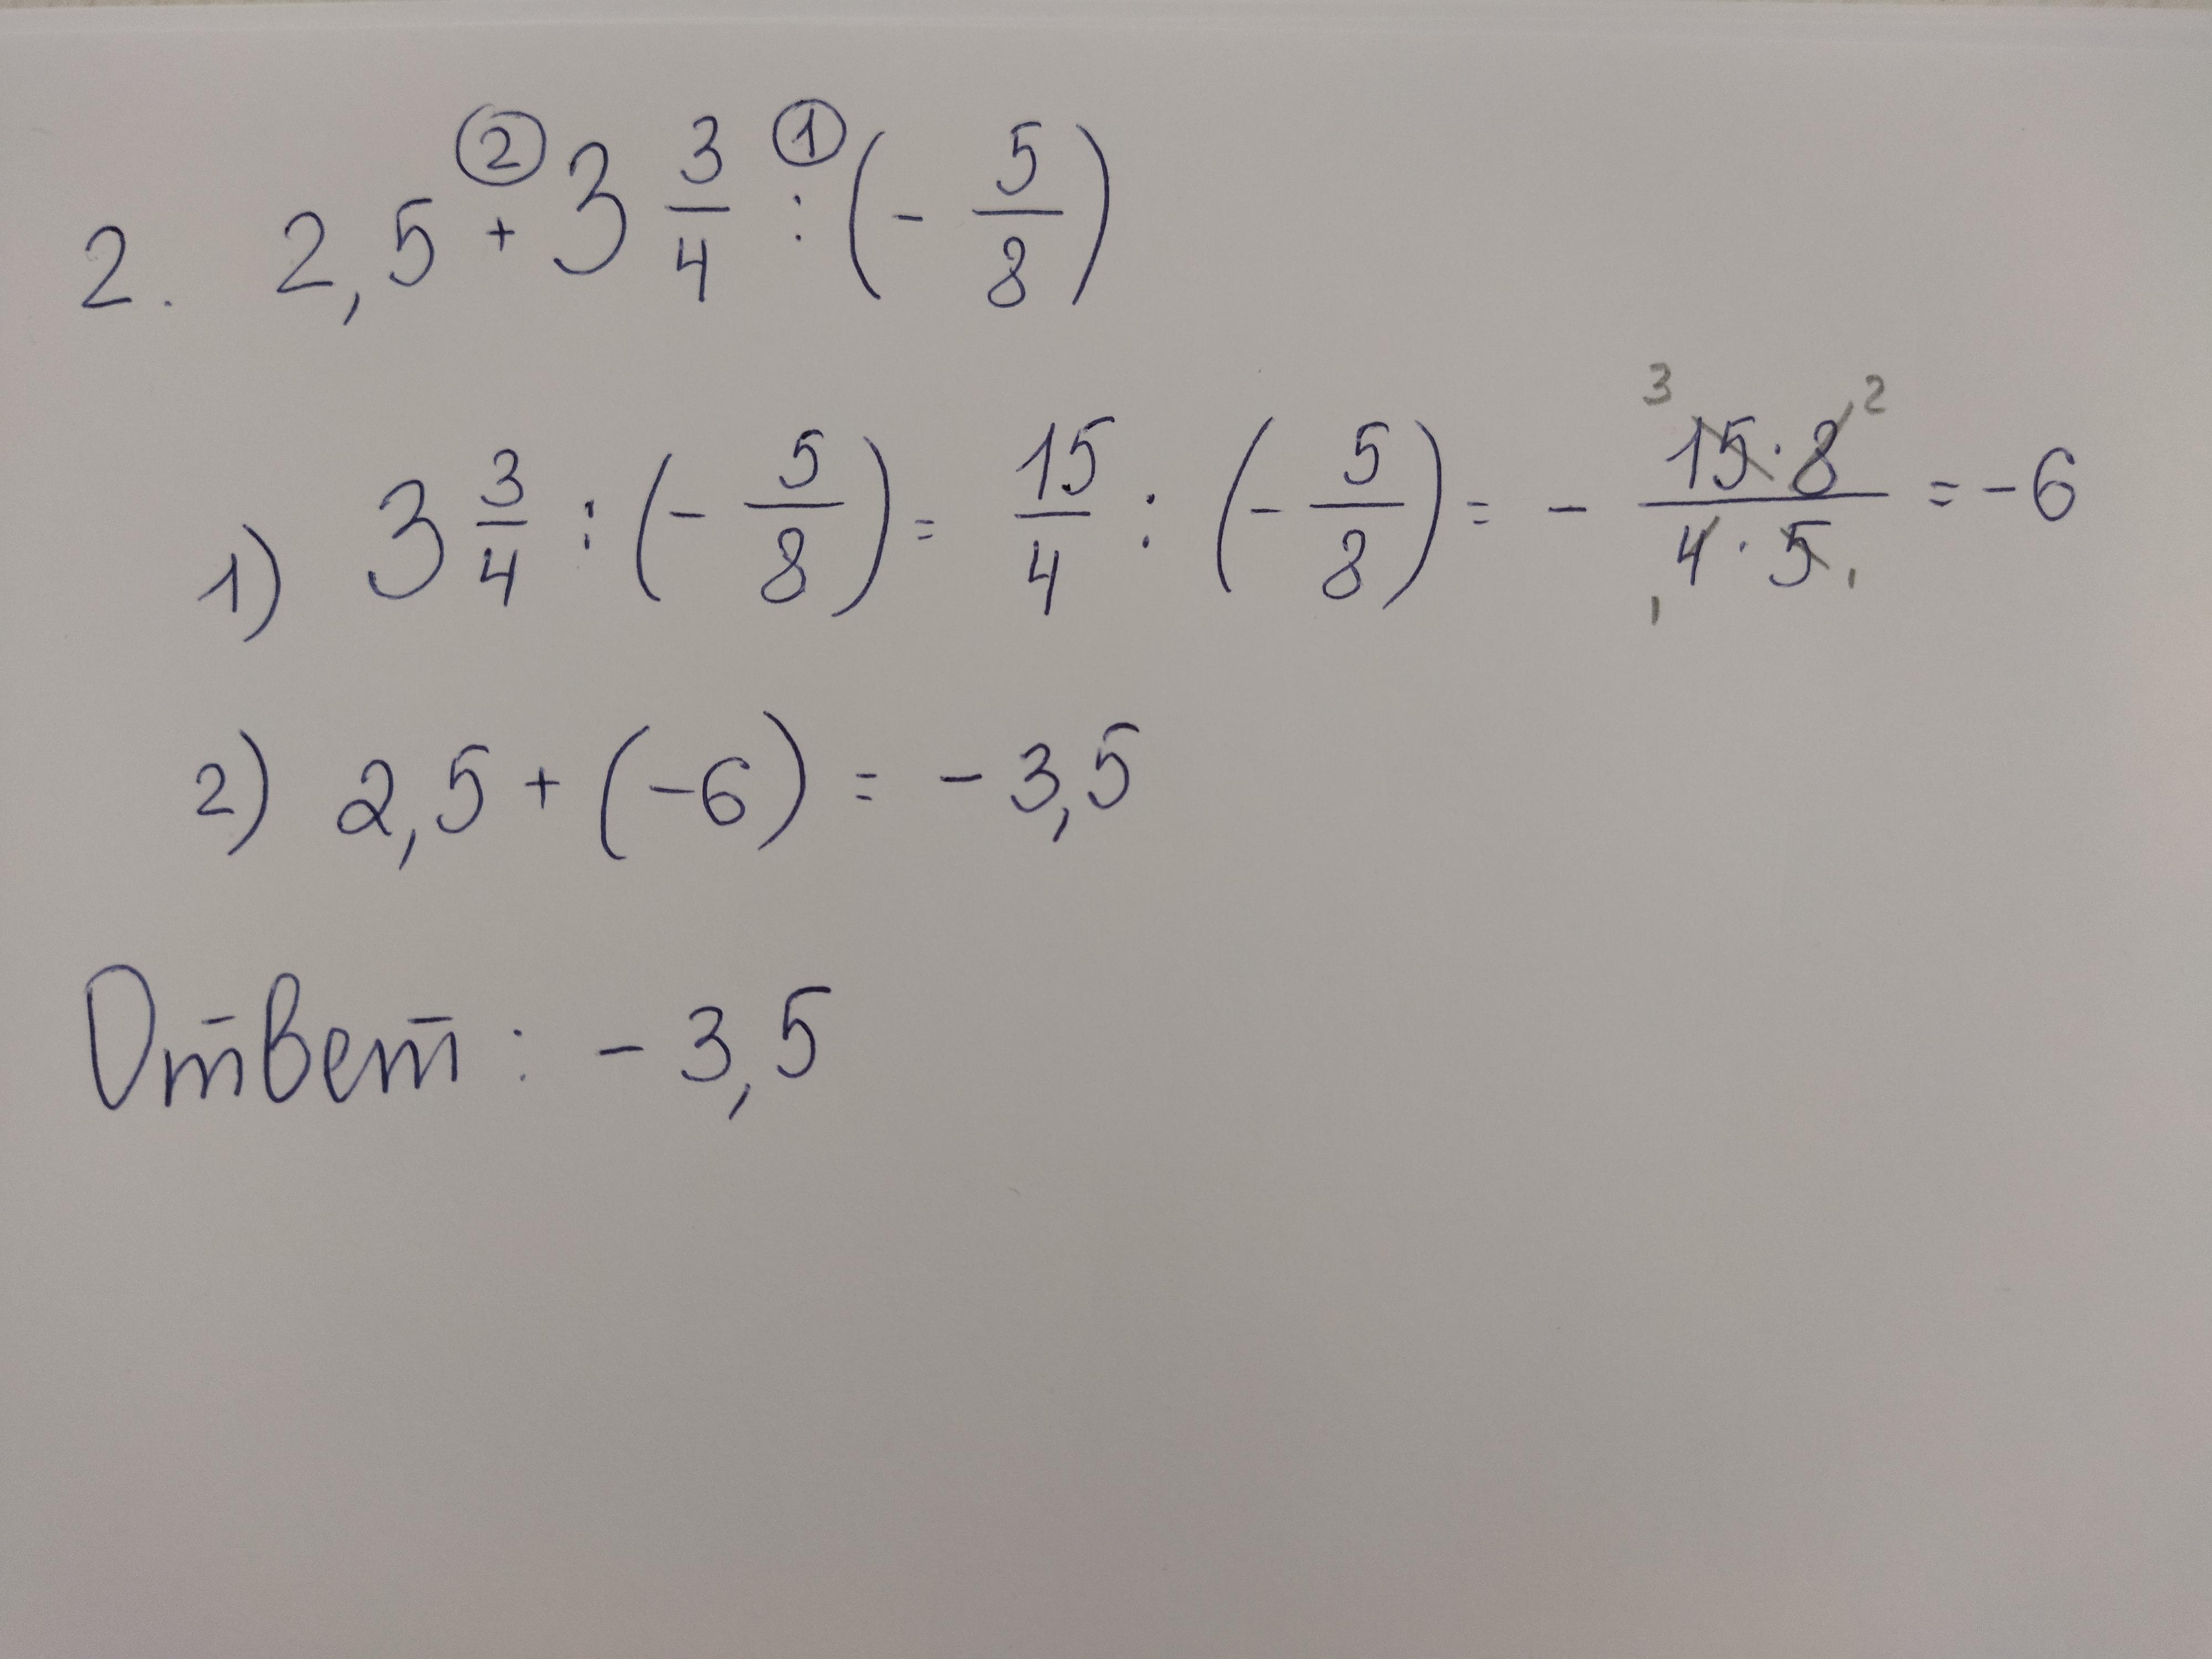 2. 2,5 +② 3 3/4 :① (- 5/8)
1) 3 3/4 : (- 5/8) = 15/4 : (- 5/8) = - ³15·8²/₁4·5₁ = -6
2) 2,5 + (-6) = - 3,5
Ответ: - 3,5